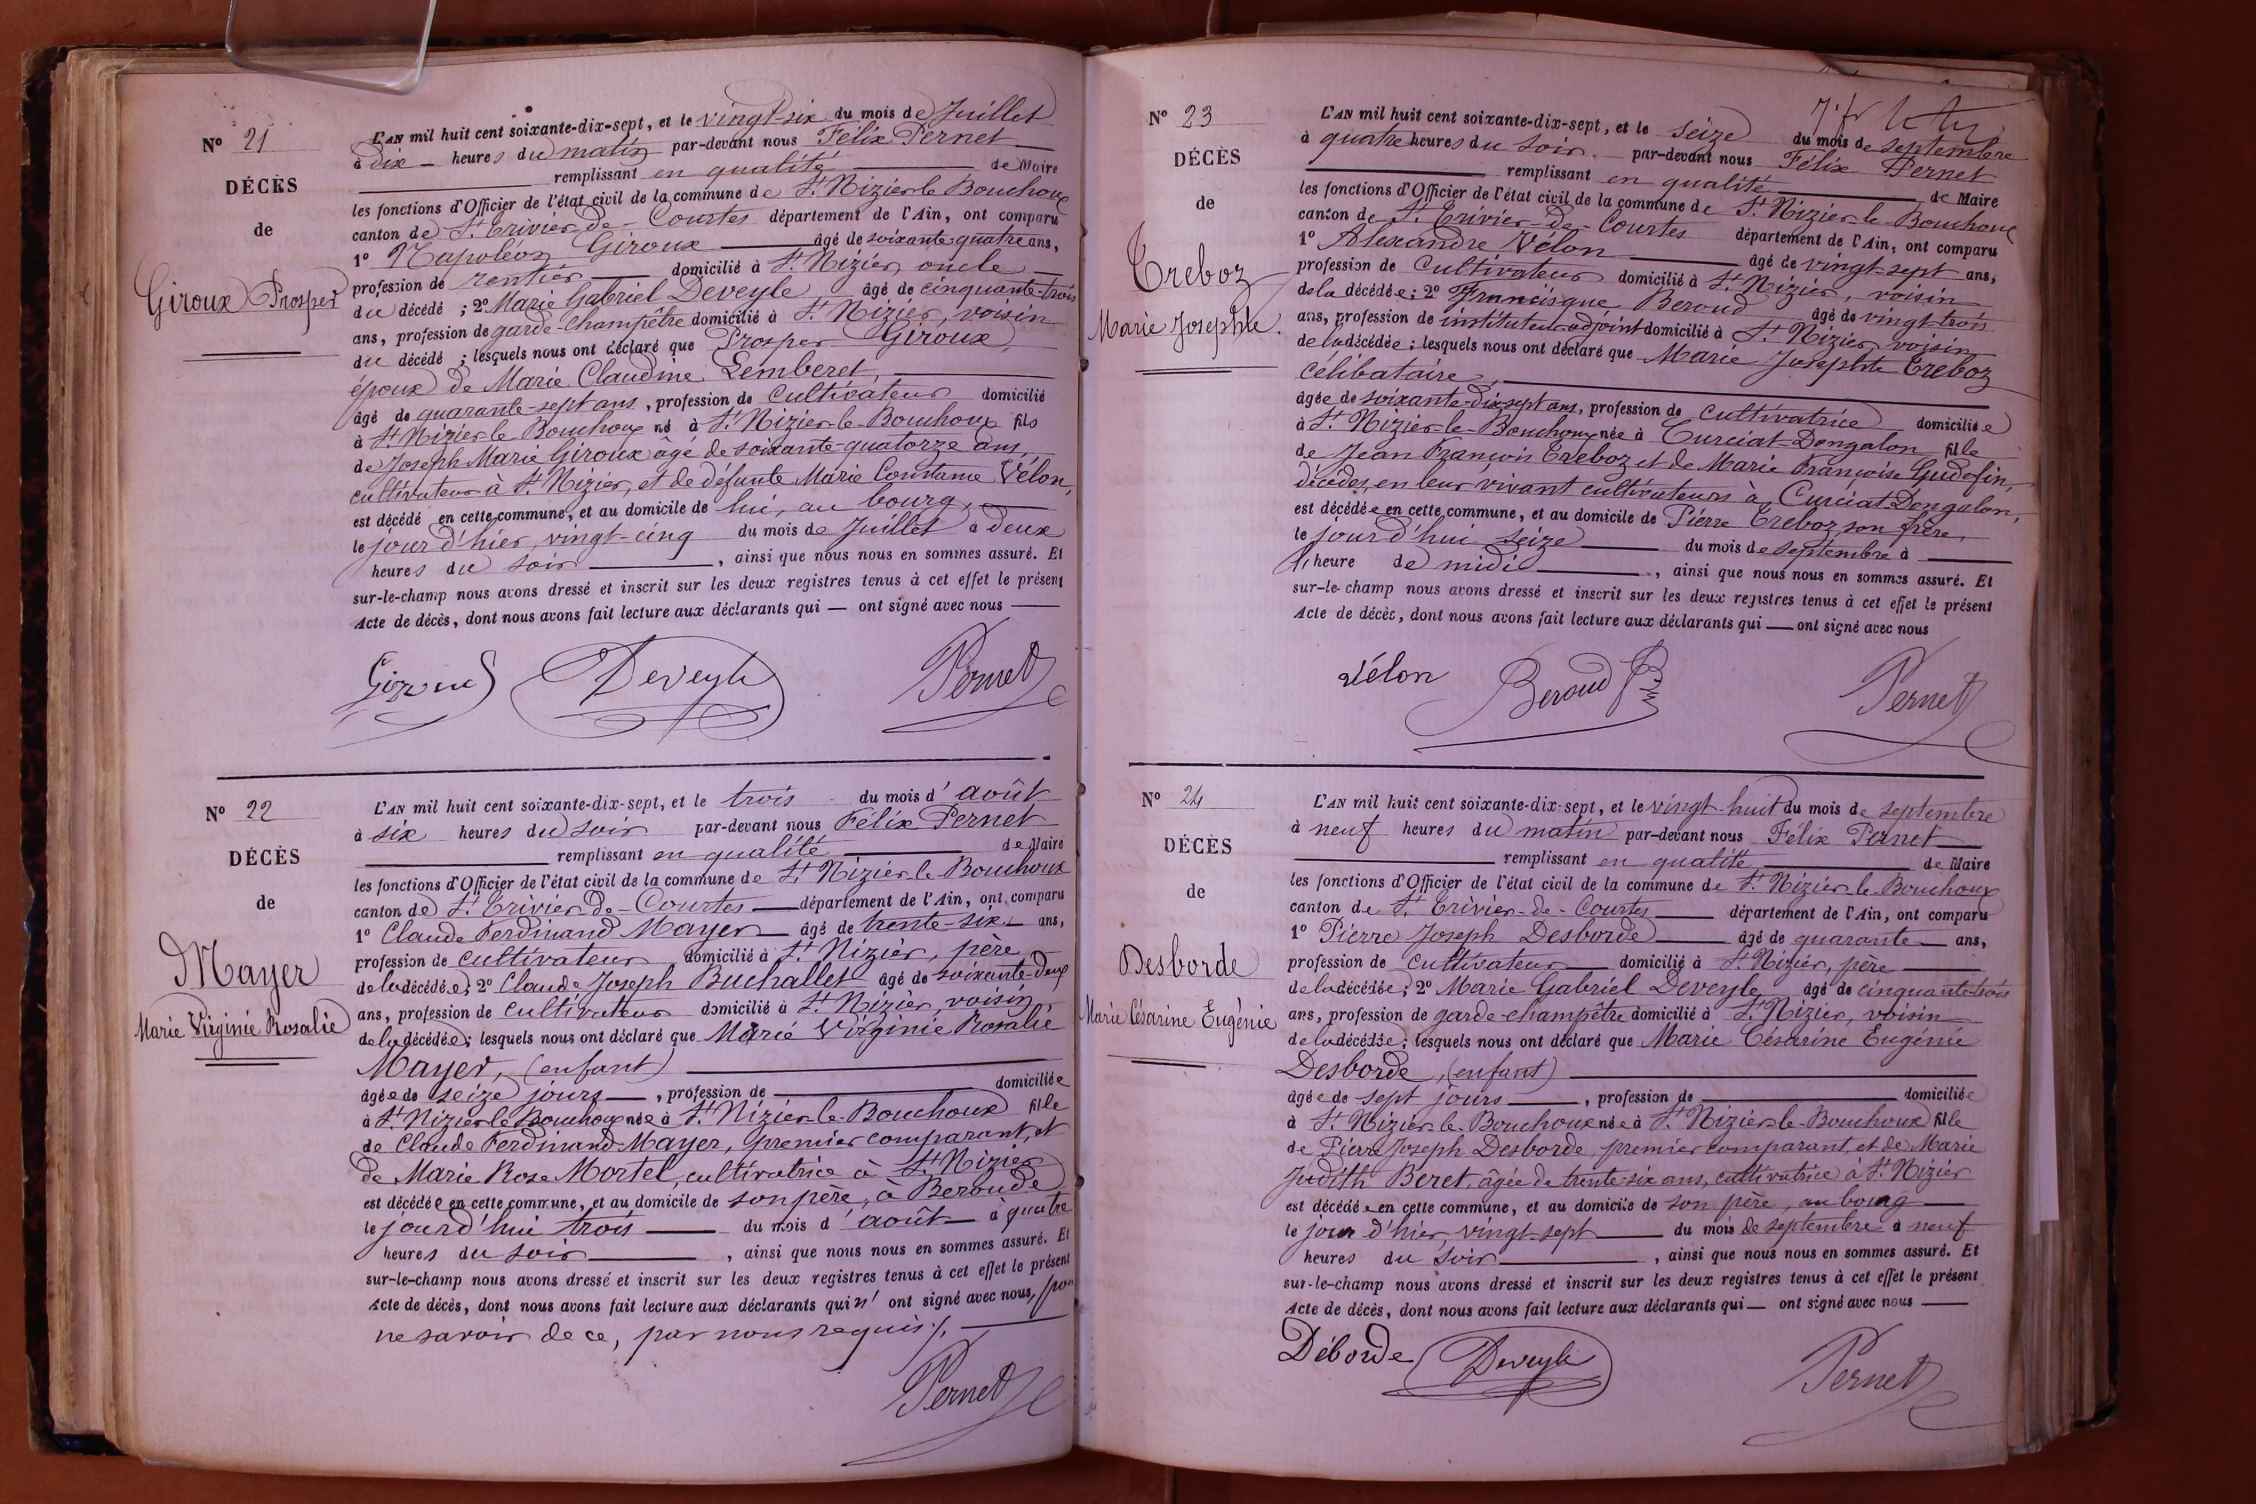 N° 21
DÉCÈS
de
Giroux Prosper
L'AN mil huit cent soixante-dix-sept, et le vingt-six du mois de Juillet
à dix heures du matin par-devant nous Félix Pernet
remplissant en qualité de Maire
les fonctions d'Officier de l'état civil de la commune de St Nizier-le Bouchoux
canton de St Trivier-de-Courtes département de l'Ain, ont comparu
1° Napoléon Giroux âgé de soixante quatre ans,
profession de rentier domicilié à St Nizier, oncle
du décédé ; 2° Marie Gabriel Deveyle âgé de cinquante-trois
ans, profession de garde-champêtre domicilié à St Nizier, voisin
du décédé ; lesquels nous ont déclaré que Prosper Giroux,
époux de Marie Claudine Lemberet,
âgé de quarante-sept ans, profession de cultivateur domicilié
à St Nizier-le Bouchoux né à St Nizier-le-Bouchoux fils
de Joseph Marie Giroux âgé de soixante quatorze ans,
cultivateur à St Nizier, et de défunte Marie Constance Vélon,
est décédé en cette commune, et au domicile de lui, au bourg,
le jour d'hier, vingt-cinq du mois de Juillet à deux
heures du soir, ainsi que nous nous en sommes assuré. Et
sur-le-champ nous avons dressé et inscrit sur les deux registres tenus à cet effet le présent
Acte de décès, dont nous avons fait lecture aux déclarants qui — ont signé avec nous
Giroux Deveyle Pernet
N° 22
DÉCÈS
de
Mayer
Marie Virginie Rosalie
L'AN mil huit cent soixante-dix-sept, et le trois du mois d'août
à six heures du soir par-devant nous Félix Pernet
remplissant en qualité de Maire
les fonctions d'Officier de l'état civil de la commune de St Nizier-le-Bouchoux
canton de St Trivier-de-Courtes département de l'Ain, ont comparu
1° Claude Ferdinand Mayer âgé de trente-six ans,
profession de cultivateur domicilié à St Nizier, père
de la décédée ; 2° Claude Joseph Buchallet âgé de soixante-deux
ans, profession de cultivateur domicilié à St Nizier, voisin
de la décédée ; lesquels nous ont déclaré que Marie Virginie Rosalie
Mayer, (enfant)
âgée de seize jours, profession de domiciliée
à St Nizier-le Bouchoux née à St Nizier-le-Bouchoux fille
de Claude Ferdinand Mayer, premier comparant, et
de Marie Rose Mortel, cultivatrice à St Nizier
est décédée en cette commune, et au domicile de son père, à Beroude
le jourd'hui trois du mois d'août à quatre
heures du soir, ainsi que nous nous en sommes assuré. Et
sur-le-champ nous avons dressé et inscrit sur les deux registres tenus à cet effet le présent
Acte de décès, dont nous avons fait lecture aux déclarants qui n'ont signé avec nous, pour
ne savoir de ce, par nous requis ./.
Pernet
N° 23
DÉCÈS
de
Treboz
Marie Josephte.
L'AN mil huit cent soixante-dix-sept, et le seize du mois de septembre
à quatre heures du soir par-devant nous Félix Pernet
remplissant en qualité de Maire
les fonctions d'Officier de l'état civil de la commune de St Nizier-le Bouchoux
canton de St Trivier-de-Courtes département de l'Ain, ont comparu
1° Alexandre Vélon âgé de vingt-sept ans,
profession de cultivateur domicilié à St Nizier, voisin
de la décédée ; 2° Francisque Beroud âgé de vingt-trois
ans, profession de instituteur adjoint domicilié à St Nizier, voisin
de la décédée ; lesquels nous ont déclaré que Marie Josephte Treboz
célibataire,
âgée de soixante-dix-sept ans, profession de cultivatrice domiciliée
à St Nizier-le-Bouchoux née à Curciat-Dongalon fille
de Jean François Treboz et de Marie Françoise Gudefin,
décédés, en leur vivant cultivateurs à Curciat-Dongalon,
est décédée en cette commune, et au domicile de Pierre Treboz son frère,
le jourd'hui seize du mois de septembre à
l'heure de midi, ainsi que nous nous en sommes assuré. Et
sur-le-champ nous avons dressé et inscrit sur les deux registres tenus à cet effet le présent
Acte de décès, dont nous avons fait lecture aux déclarants qui — ont signé avec nous
Vélon Beroud Pernet
N° 24
DÉCÈS
de
Desborde
Marie Césarine Eugénie
L'AN mil huit cent soixante-dix-sept, et le vingt-huit du mois de septembre
à neuf heures du matin par-devant nous Félix Pernet
remplissant en qualité de Maire
les fonctions d'Officier de l'état civil de la commune de St Nizier-le-Bouchoux
canton de St Trivier-de-Courtes département de l'Ain, ont comparu
1° Pierre Joseph Desborde âgé de quarante ans,
profession de cultivateur domicilié à St Nizier, père
de la décédée ; 2° Marie Gabriel Deveyle âgé de cinquante-trois
ans, profession de garde-champêtre domicilié à St Nizier, voisin
de la décédée ; lesquels nous ont déclaré que Marie Césarine Eugénie
Desborde, (enfant)
âgée de sept jours, profession de domiciliée
à St Nizier-le-Bouchoux née à St Nizier-le-Bouchoux fille
de Pierre Joseph Desborde, premier comparant, et de Marie
Judith Beret, âgée de trente-six ans, cultivatrice à St Nizier
est décédée en cette commune, et au domicile de son père, au bourg
le jour d'hier, vingt-sept du mois de septembre à neuf
heures du soir, ainsi que nous nous en sommes assuré. Et
sur-le-champ nous avons dressé et inscrit sur les deux registres tenus à cet effet le présent
Acte de décès, dont nous avons fait lecture aux déclarants qui — ont signé avec nous
Déborde Deveyle Pernet